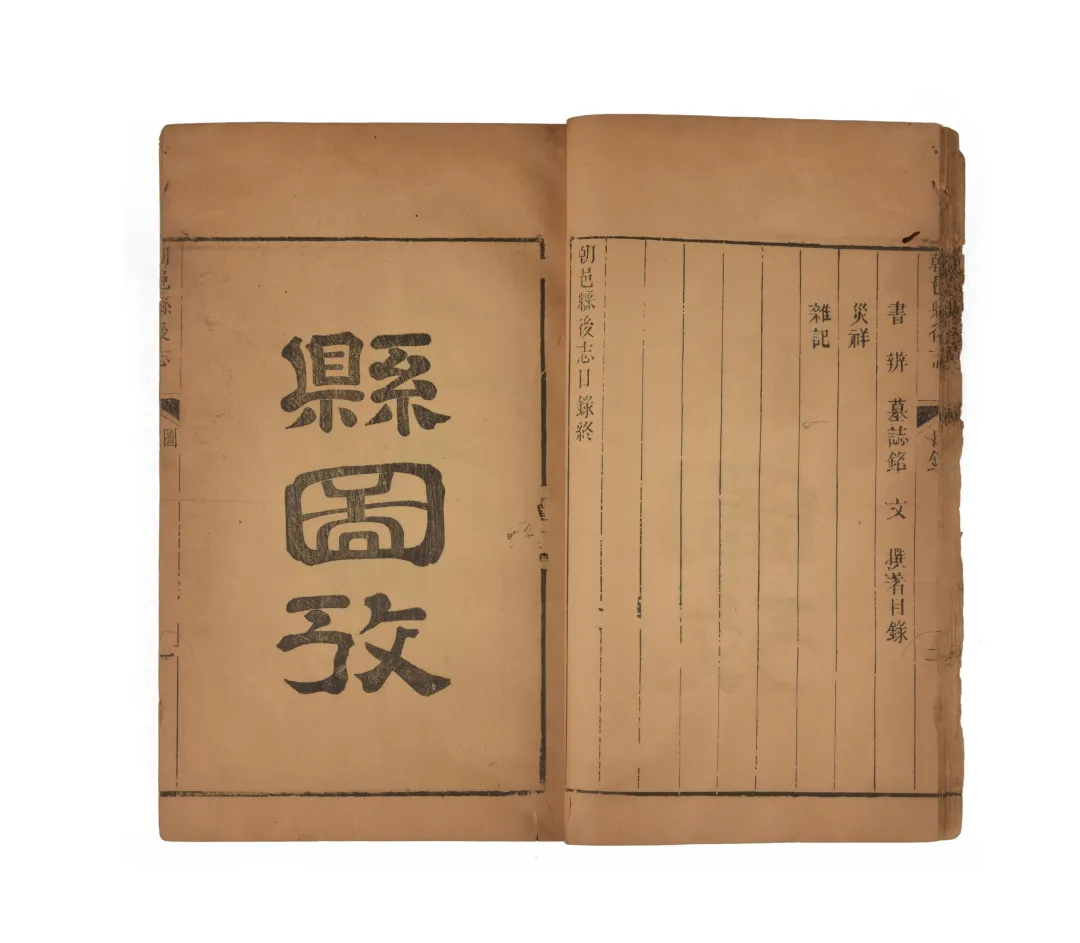 朝邑縣後志
目錄
二
書 辨 墓誌銘 文 撰著目錄
災祥
雜記
朝邑縣後志目錄終
縣圖攷
朝邑縣後志
圖